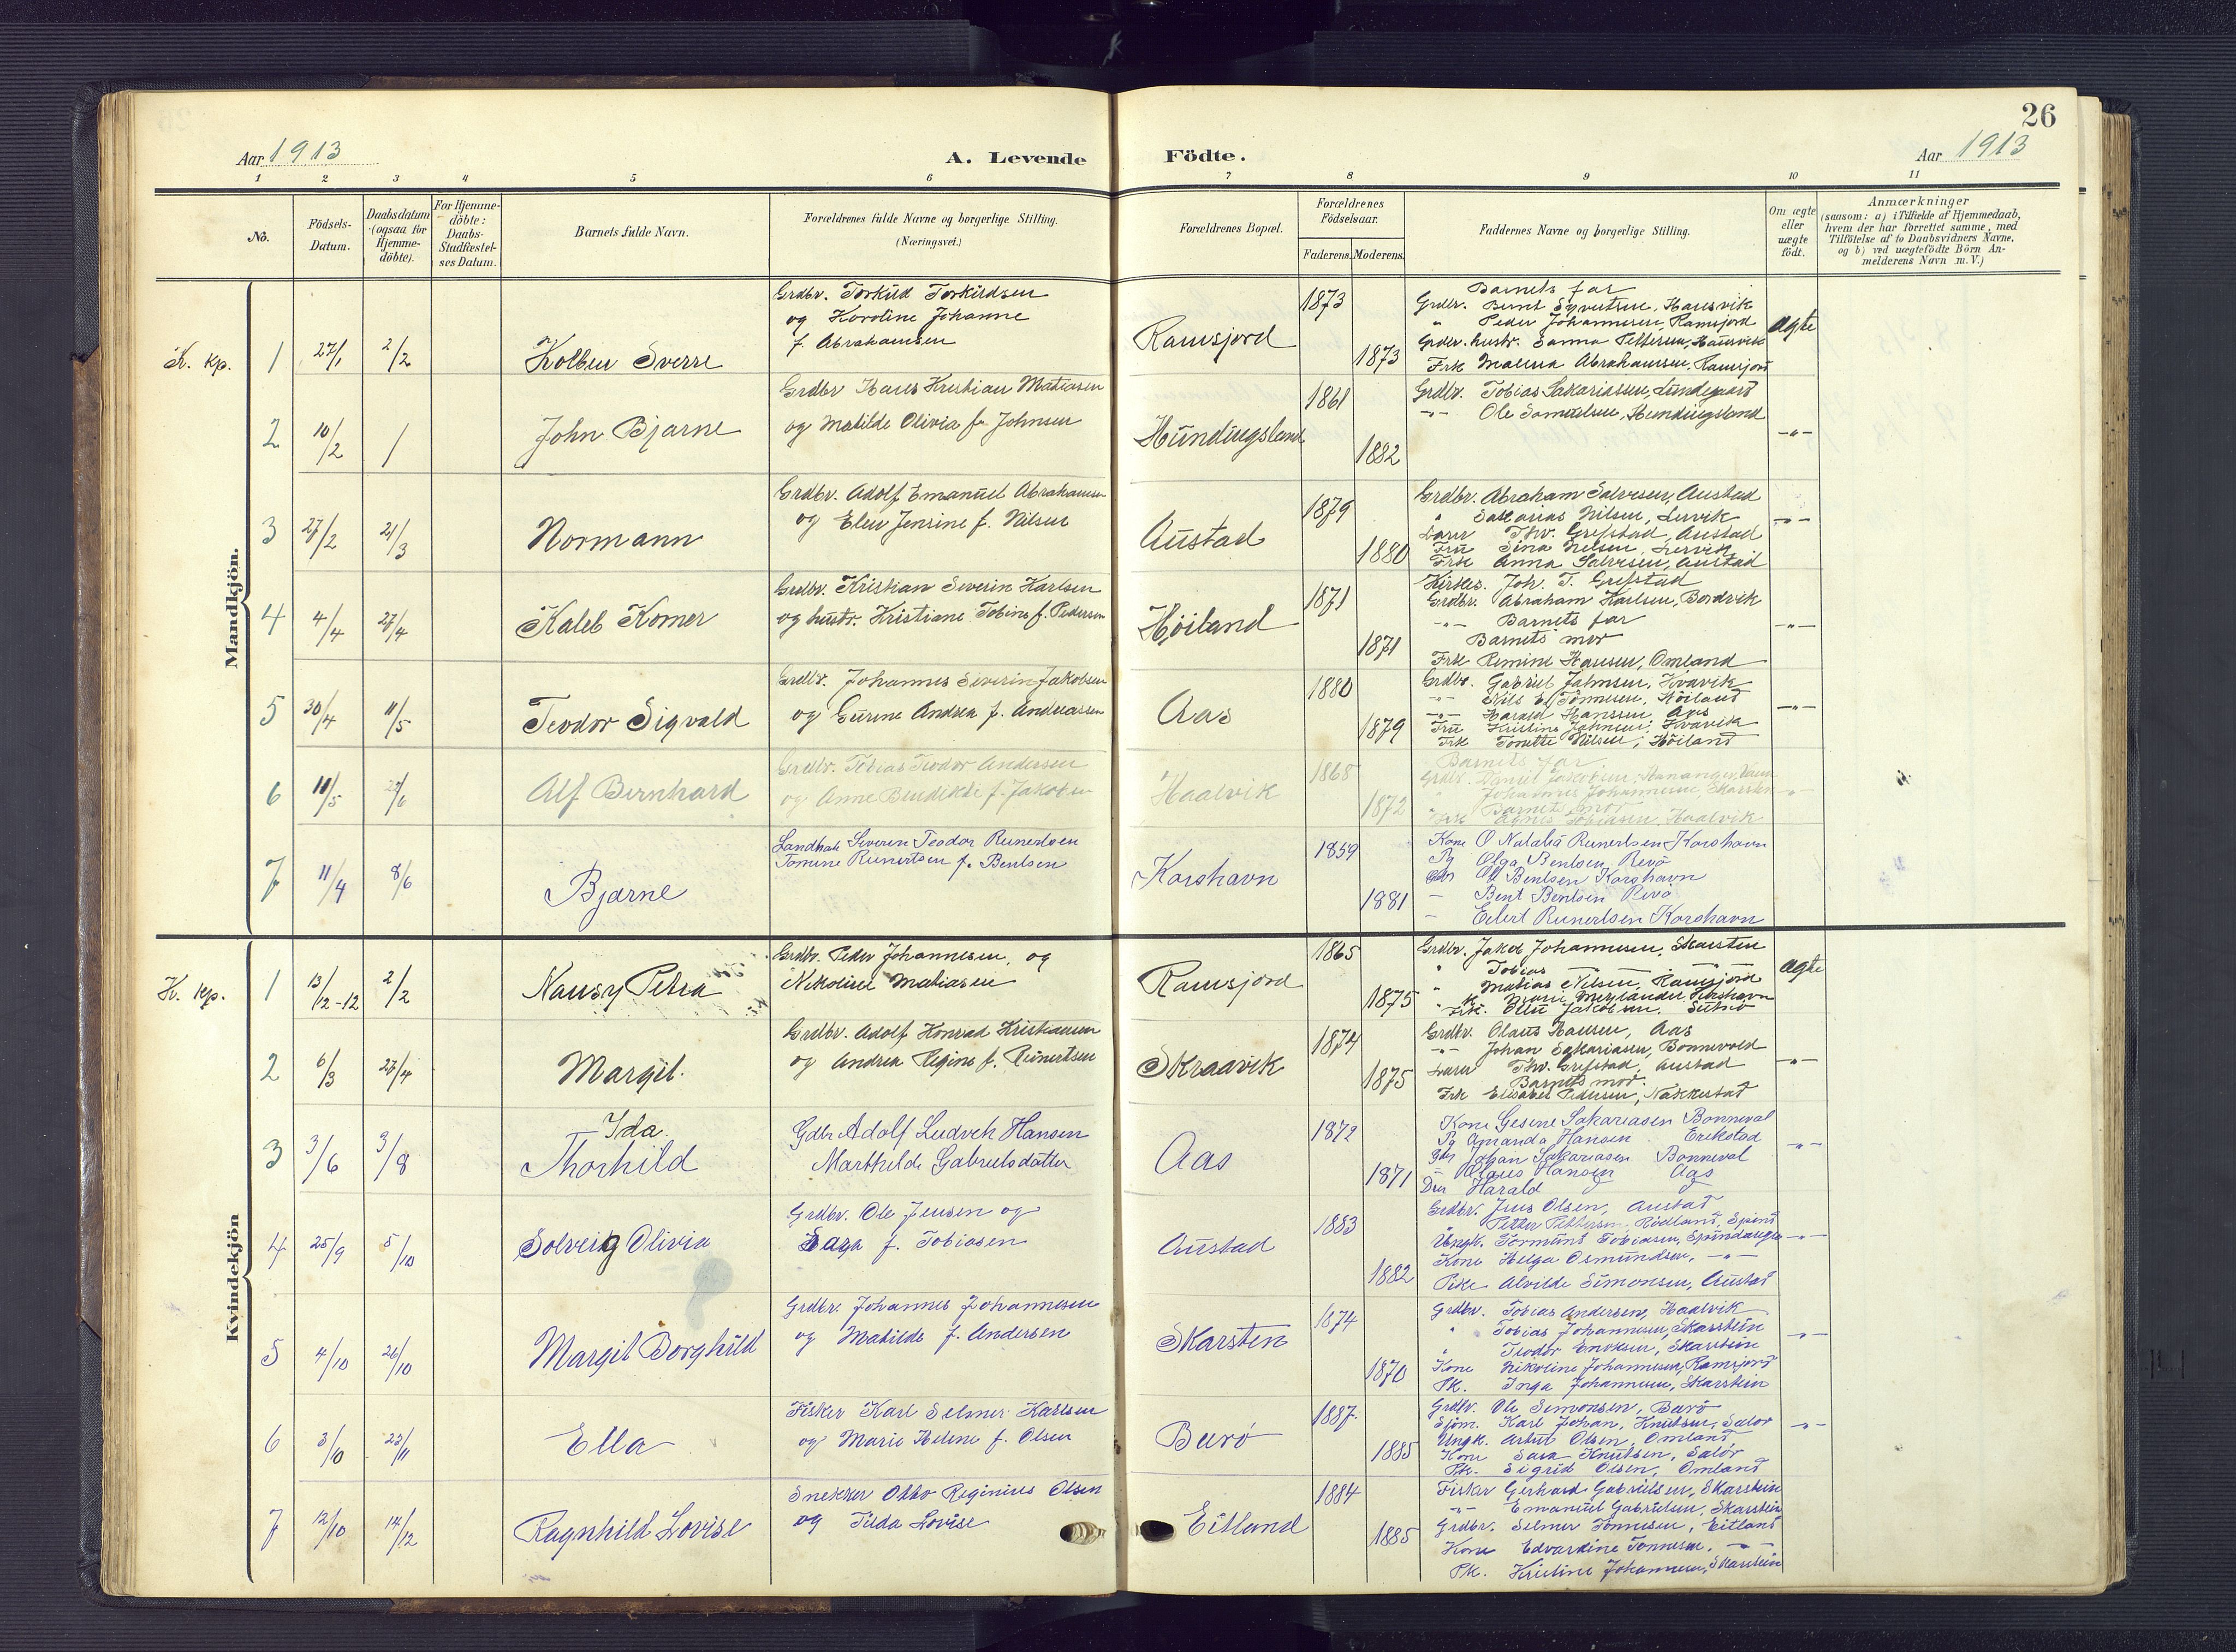 26
Aar 1913
A. Levende Födte.
Aar 1913
1 2 3 4 5 6 7 8 9 10 11
No.
Födsels-Datum.
Daabsdatum (ogsaa for Hjemme-döbte).
For Hjemme-döbte: Daabs-Stadfæstel-ses Datum.
Barnets fulde Navn.
Forældrenes fulde Navne og borgerlige Stilling.
(Næringsvei.)
Forældrenes Bopæl.
Forældrenes Födselsaar.
Faderens. Moderens.
Faddernes Navne og borgerlige Stilling.
Om ægte eller uægte födt.
Anmærkninger
(saasom: a) i Tilfælde af Hjemmedaab,
hvem der har forrettet samme, med
Tilföielse af to Daabsvidners Navne,
og b) ved uægtefödte Börn An-
melderens Navn m. V.)
Mandkjön.
K. kp. 1 27/1 2/2 Kolben Sverre
Grdbr. Torkild Torkildsen
og Karoline Johanne
f. Abrahamsen
Ramsjord 1873 1873
Barnets far
Grdbr. Bernt Syvertsen, Haresvik
" Peder Johannesen, Ramsjord
Grdbr. hustr. Sanna Pettersen,
Frk Malena Abrahamsen, Ramsjord
Ægte
2 10/2 / John Bjarne
Grdbr Hans Kristian Matiasen
og Matilde Olivia f. Johnsen
Hundingsland 1861 1882
Grdbr. Tobias Sakariassen, Lundegaard
-"- Ole Samuelsen, Hundingsland
-"-
3 27/2 21/3 Normann
Grdbr. Adolf Emanuel Abrahamsen
og Elen Jensine f. Nilsen
Austad 1879 1880
Grdbr. Abraham Salvesen, Austad
" Sakarias Nilsen, Lervik
Lærer Thv. Grefstad, Austad
Fru Sina Nelsen, Lervik
Frk Anna Salvesen, Austad
-"-
4 4/4 27/4 Kaleb Komer
Grdbr. Kristian Severin Karlsen
og hustr. Kristiane Tobine f. Pedersen
Höiland 1871 1871
Kirkes. Joh. T. Grefstad
Grdbr. Abraham Karlsen, Bordvik
-"- Barnets far
Barnets mor
Frk Remine Hansen, Omland
-"-
5 30/4 11/5 Teodor Sigvald
Grdbr. Johannes Severin Jakobsen
og Gurine Andrea f. Andreassen
Aas 1880 1879
Grdbr. Gabriel Jahnsen, Kvavik
-"- Nils Tönnesen, Höiland
-"- Harald Hanssen, Aas
Fru Kristine Jahnsen, Kvavik
Frk Tonette Nilsen, Höiland
-"-
6 11/5 22/6 Alf Bernhard
Grdbr. Tobias Teodor Andersen
og Anne Bendikte f. Jakobsen
Haalvik 1868 1872
Barnets far
Grdbr. Daniel Jakobsen,
" Johannes Johannesen, Skarsten
Barnets mor
Frk Agnes Tobiasen, Haalvik
-"-
7 11/4 8/6 Bjarne
Landhdl Severin Teodor Reinertsen
Tomine Reinertsen f. Bentsen
Korshavn 1859 1881
Kone O Natalia Reinertsen Korshavn
Pg Olga Bentsen Revö
Bentsen Korshavn
- Bent Bentsen Revö
- Eilert Reinertsen Korshavn
Kvindekjön
K. kp. 1 13/12-12 2/2 Nansy Petra
Grdbr. Peder Johannesen, og
Nikoline Matiasen
Ramsjord 1865 1875
Grdbr. Jakob Johannesen, Skarsten
" Tobias -"- -"-
" Matias Nilsen, Ramsjord
" k. Marie Meylander, Korshavn
Frk. Jakobsen,
Ægte
2 6/3 27/4 Margit.
Grdbr. Adolf Konrad Kristiansen
og Andrea Regine f. Reinertsen
Skraavik 1874 1875
Grdbr. Olaus Hansen, Aas
-"- Johan Sakariasen, Bonnevold
Lærer Thv. Grefstad, Austad
Barnets mor.
Frk Elisabet Pedersen, Nakkestad
-"-
3 3/6 3/8 Ida Thorhild
Gdbr Adolf Ludvek Hansen
Marthilde Gabrielsdatter
Aas 1872 1871
Kone Gesine Sakariasen Bonneval
Pg Amanda Hansen Erikstad
Gbr Johan Sakariasen Bonneval
- Olaus Hansen Aas
Drn Harald
-"-
4 25/9 5/10 Solveig Olivia
Grdbr. Ole Jensen og
Sara f. Tobiasen
Austad 1883 1882
Grdbr. Jens Olsen, Austad
" Petter Pettersen, Rödland, Spind
Ungk. Tormund Tobiasen,
Kone Helga Osmundsen, -"-
Pike Alvilde Simonsen, Austad
-"-
5 4/10 26/10 Margit Borghild
Grdbr. Johannes Johannesen
og Matilde f. Andersen
Skarsten 1874 1870
Grdbr. Tobias Andersen, Haalvik
" Tobias Johannesen, Skarstein
" Teodor Enoksen, Skarstein
Kone Nikoline Johannesen, Ramsjord
Pk. Inga Johannesen, Skarstein
-"-
6 3/10 23/11 Ella
Fisker Karl Selmer Karlsen
og Marie Helene f. Olsen
Burö 1887 1885
Grdbr. Ole Simonsen, Burö
Sjöm. Karl Johan Knutsen, Salör
Ungk. Artur Olsen, Omland
Kone Sara Knutsen, Salör
Pk. Sigrid Olsen, Omland
-"-
7 12/10 14/12 Ragnhild Lovise
Snekker Otto Reginius Olsen
og Tilda Lovise
Eitland 1884 1885
Fisker Gerhard Gabrielsen, Skarstein
-"- Emanuel Gabrielsen, Skarstein
Grdbr. Selmer Tönnesen, Eitland
Kone Edvardine Tönnesen, -"-
Pk. Kristine Johannesen, Skarstein